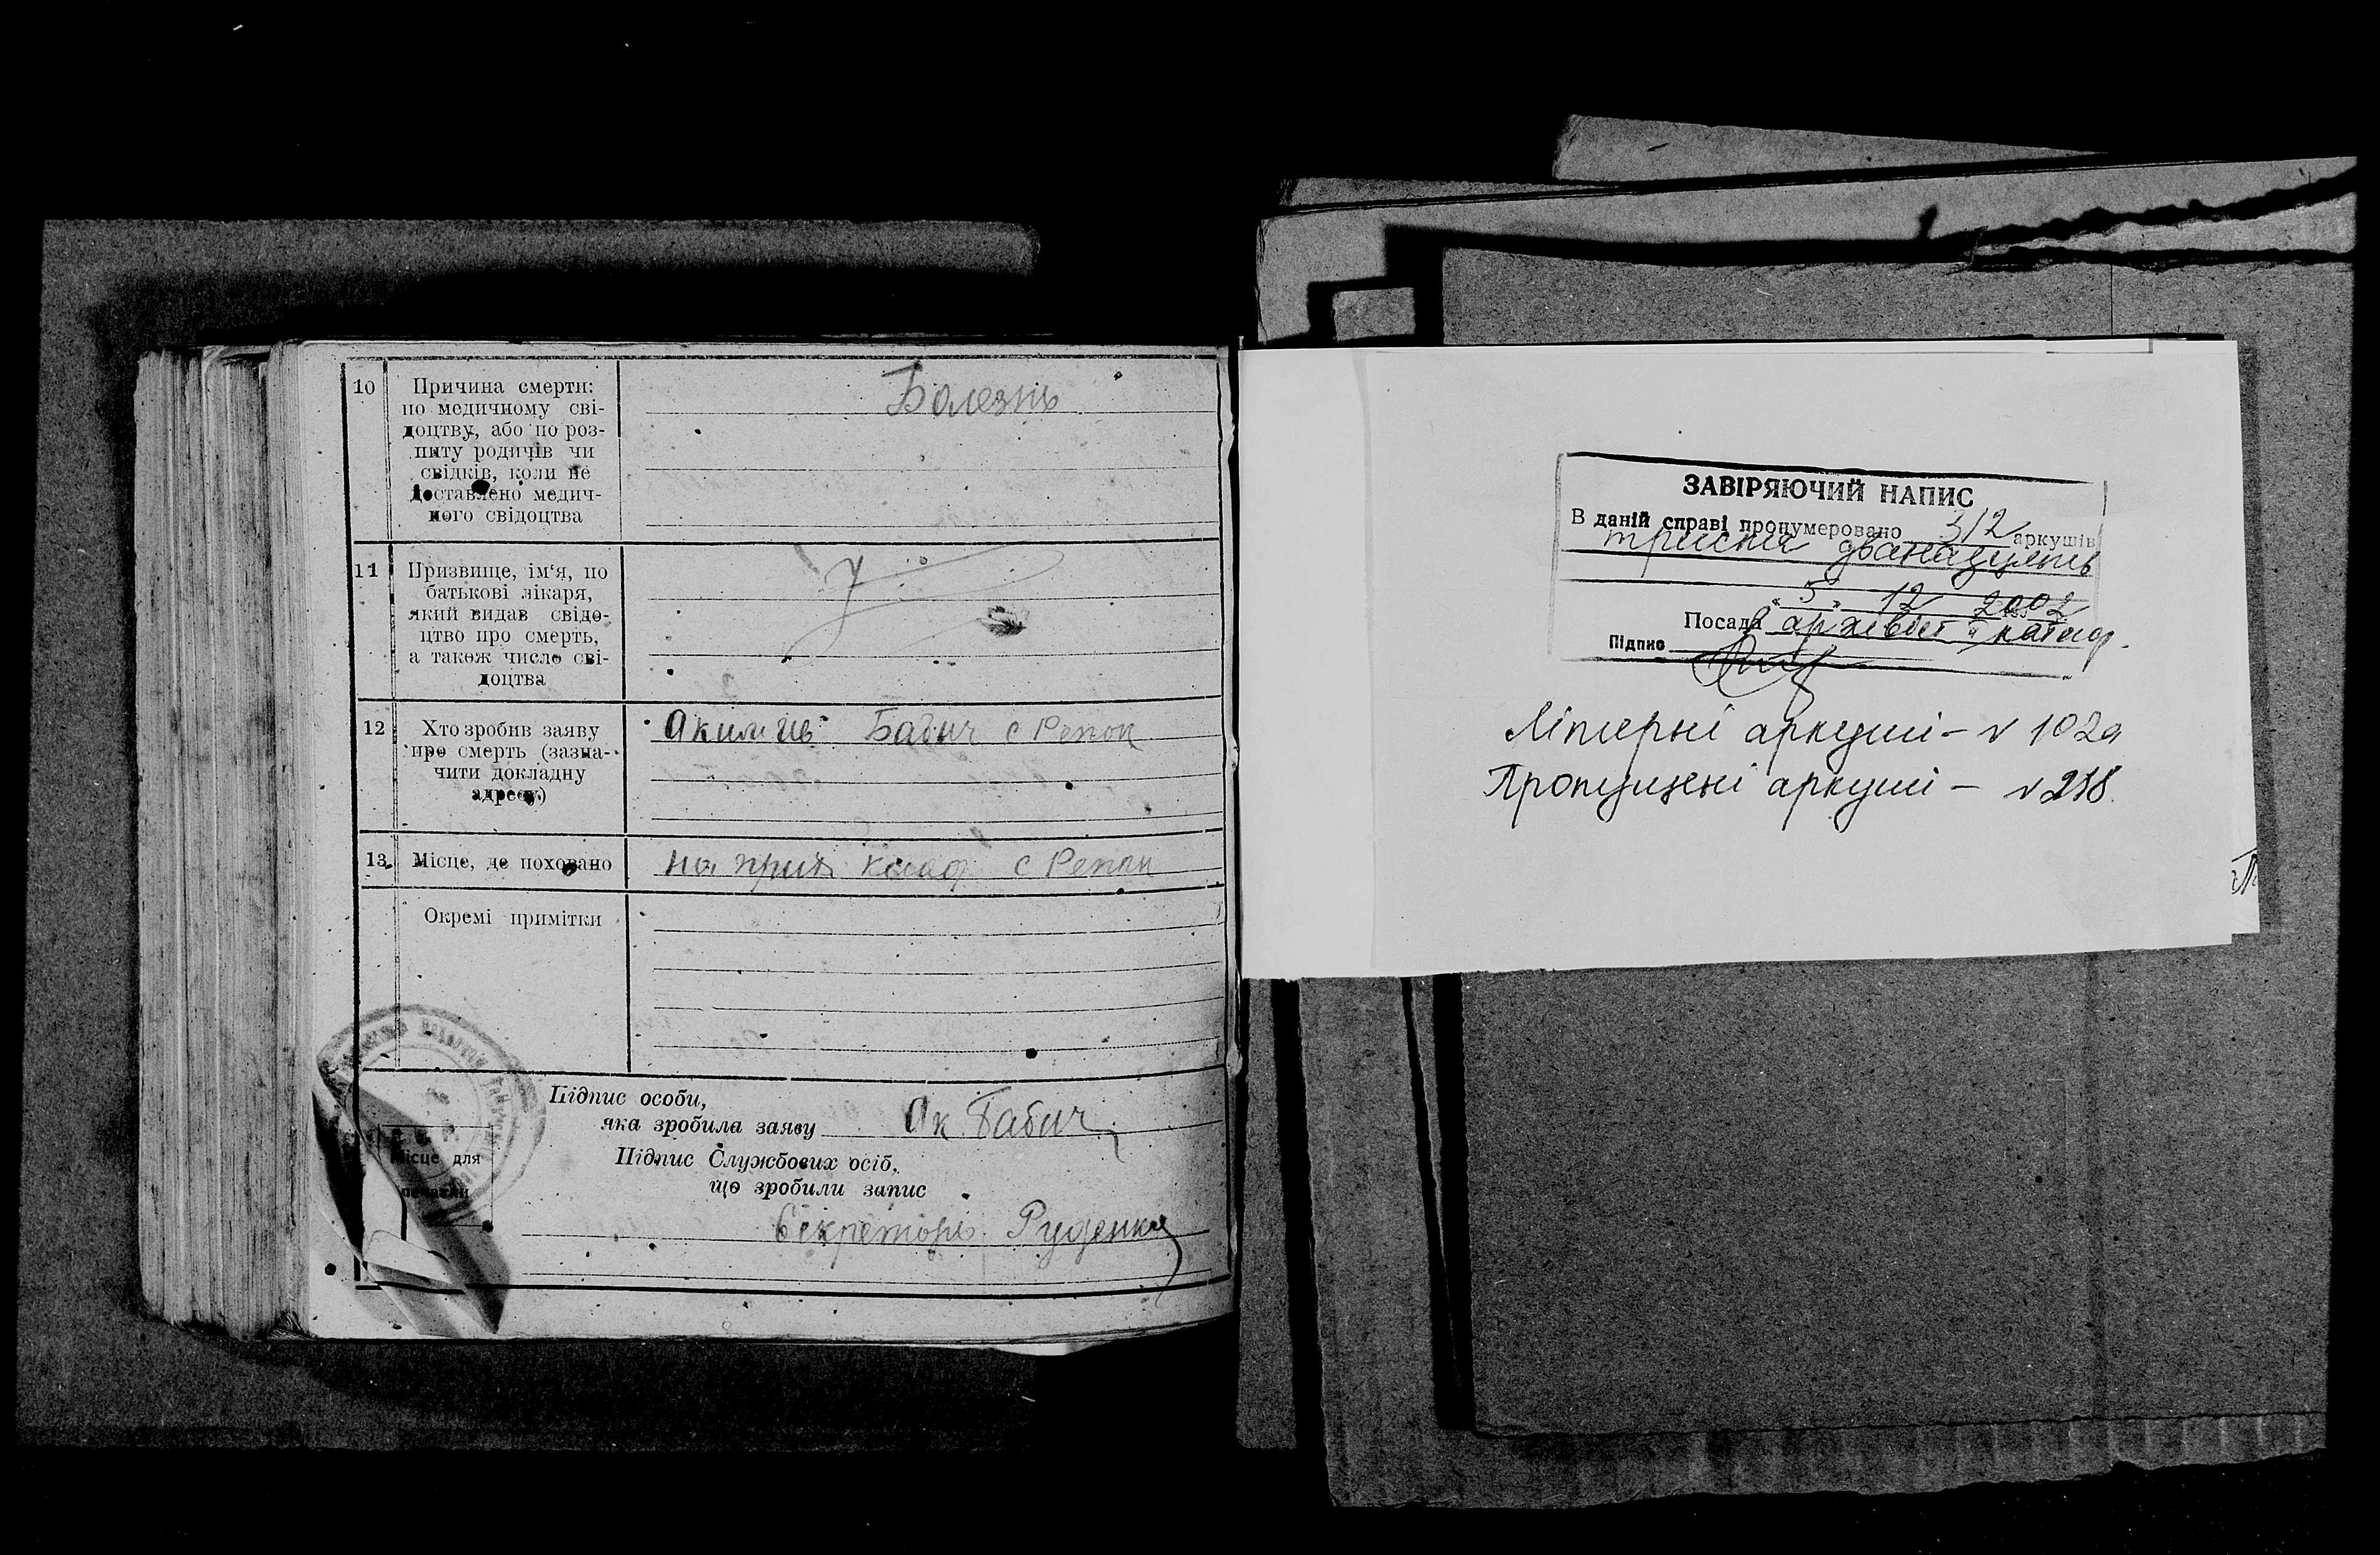 10
Причина смерти:
по медичному сві-
доцтву, або по роз-
питу родичів чи
свідків, коли не
доставлено медич-
ного свідоцтва
Болезнь
11
Призвище, ім'я, по
батькові лікаря,
який видав свідо-
цтво про смерть,
а також число сві-
доцтва
12
Хто зробив заяву
про смерть (зазна-
чити докладну
адресу)
Бабич с Репок
13.
Місце, де поховано
на клад с Репок
Окремі примітки
Підпис особи,
яка зробила заяву Ак Бабич
Підпис Службових осіб,
що зробили запис
Місце для
печатки
Секреторь Руденко
ЗАВІРЯЮЧИЙ НАПИС
В даній справі пронумеровано 312 аркушів
триста дванадцять
"5" 12 2002
Посада архівіст
Підпис
Літерні аркуші – N 102а
Пропущені аркуші – N 218